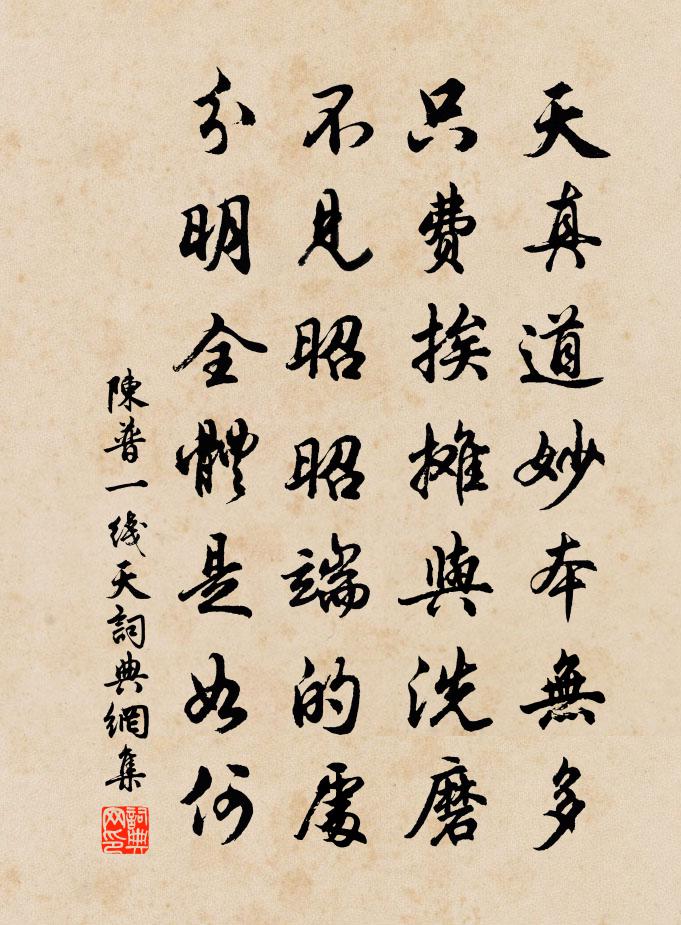 天真道妙本無多
只費挨攤與洗磨
不見昭昭端的處
分明全體是如何
陳普一线天詞典網集
詞典网印